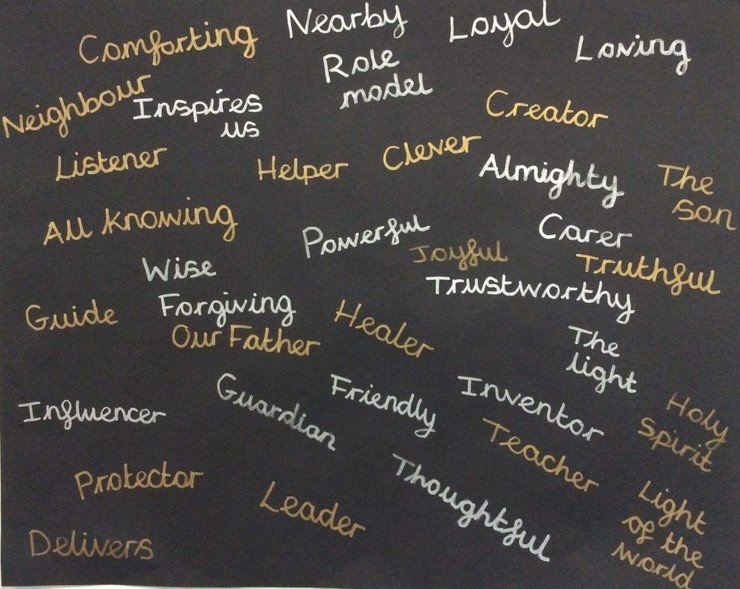 Comforting
Nearby
Loyal
Loving
Neighbour
Inspires
us
Role
model
Creator
Listener
Helper
Clever
Almighty
The
son
All knowing
Powerful
Joyful
Carer
Truthful
Wise
Trustworthy
Guide
Forgiving
Our Father
Healer
The
light
Influencer
Guardian
Friendly
Inventor
Holy
Spirit
Protector
Leader
Thoughtful
Teacher
Light
of the
world
Delivers